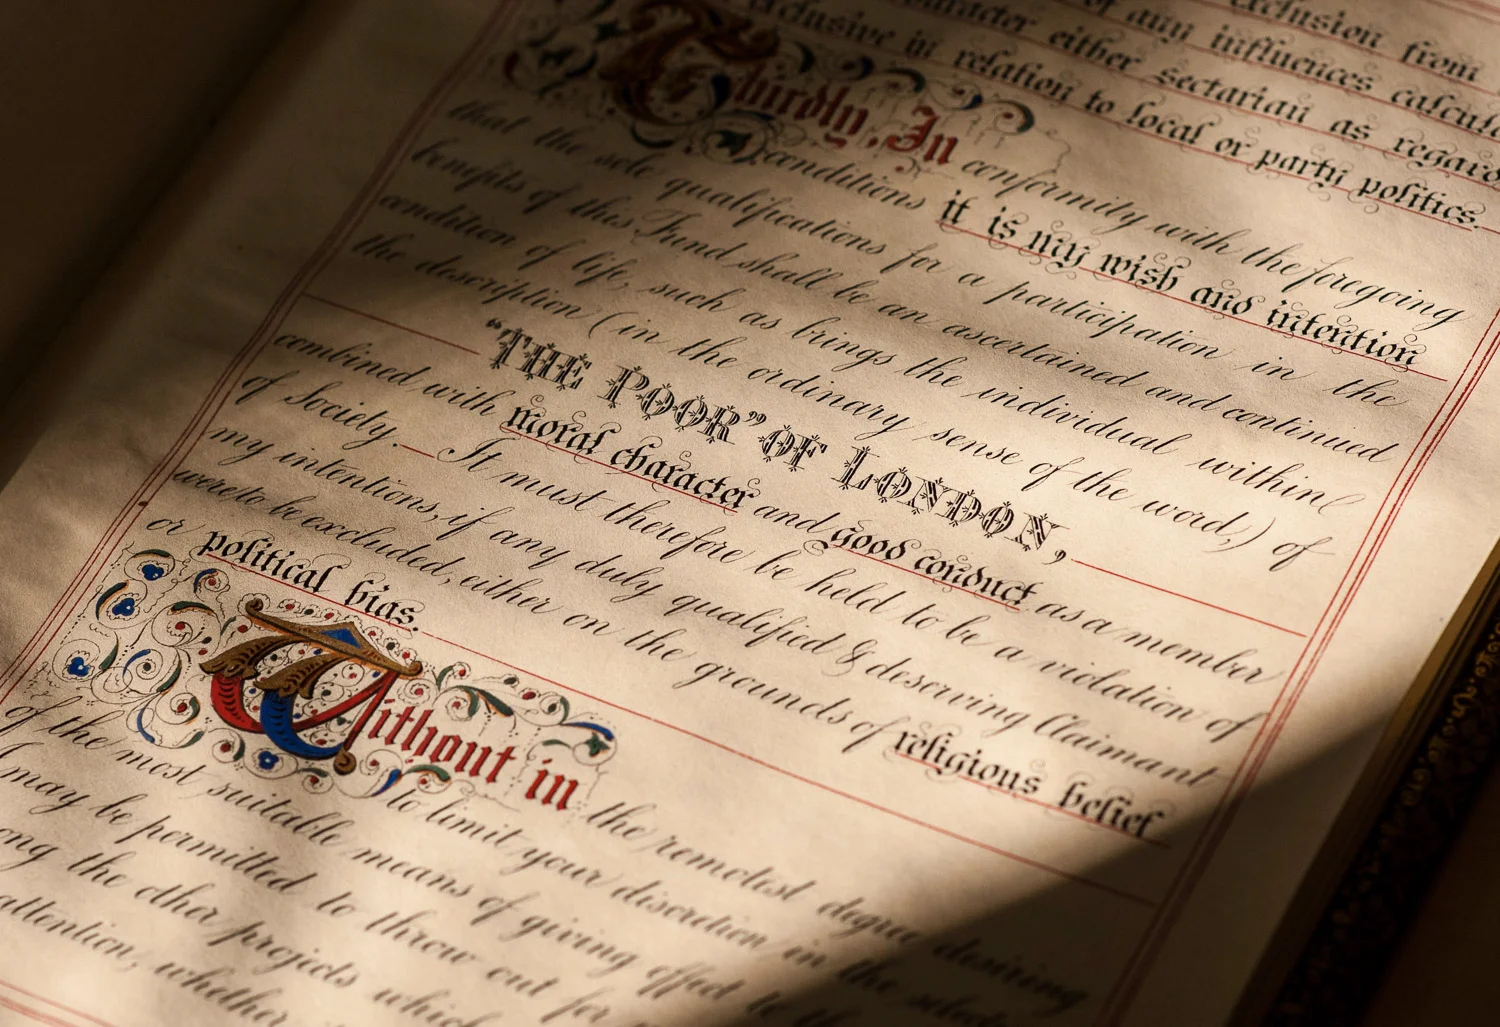 exclusion from
of any influences calcula
character either sectarian as regard
exclusive in relation to local or party politics.
Thirdly, In conformity with the foregoing
conditions it is my wish and intention
that the sole qualifications for a participation in the
benefits of this Fund shall be an ascertained and continued
condition of life, such as brings the individual within
the description (in the ordinary sense of the word,) of
"THE POOR" OF LONDON,
combined with moral character and good conduct as a member
of Society. It must therefore be held to be a violation of
my intentions, if any duly qualified & deserving Claimant
were to be excluded, either on the grounds of religious belief
or political bias.
Without in the remotest degree desiring
to limit your discretion in the selec
of the most suitable means of giving effect to the
may be permitted to throw out for
ong the other projects which
attention, whether